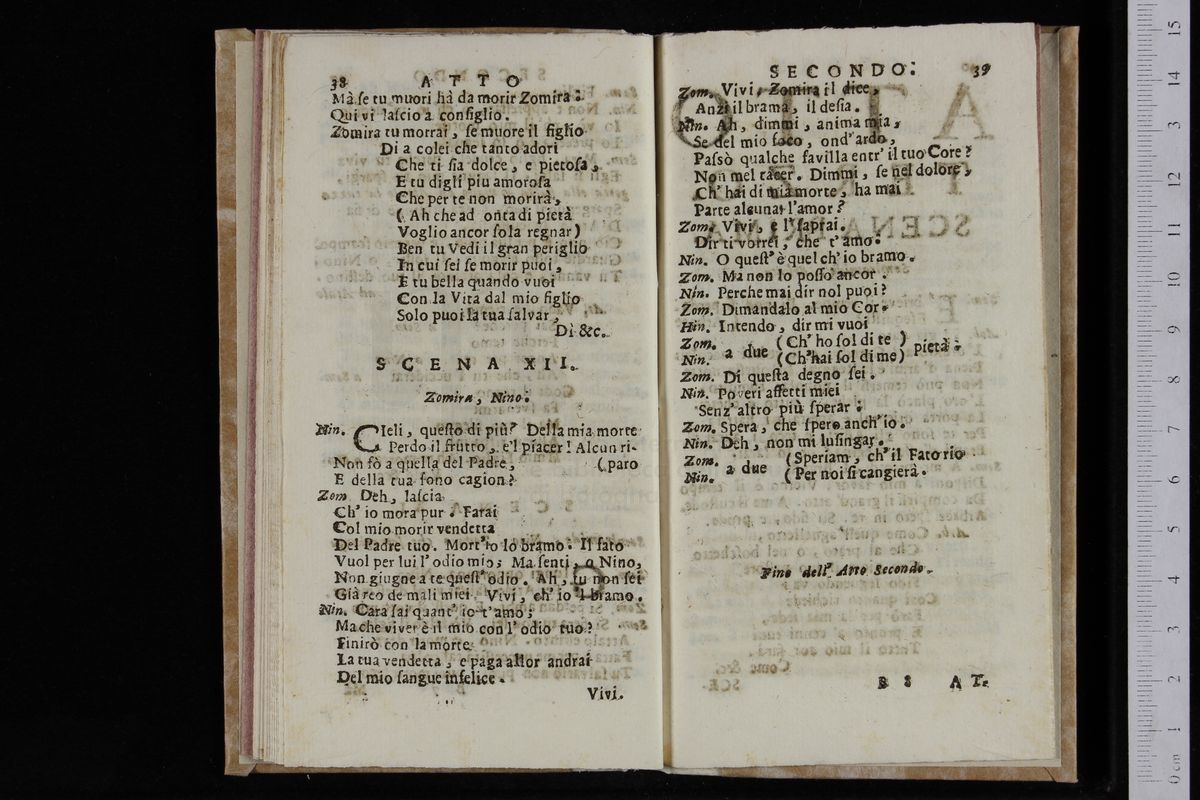 38 ATTO
Mà se tu muori hà da morir Zomira:
Qui vi lascio a consiglio.
Zomira tu morrai, se muore il figlio
Di a colei che tanto adori
Che ti sia dolce, e pietosa,
E tu digli piu amorosa
Che per te non morirà,
( Ah che ad onta di pietà
Voglio ancor sola regnar)
Ben tu Vedi il gran periglio
In cui sei se morir puoi,
E tu bella quando vuoi
Con la Vita dal mio figlio
Solo puoi la tua salvar,
Di &c.
SCENA XII.
Zomira, Nino.
Nin. CIeli, questo di più? Della mia morte
Perdo il frutto, e'l piacer! Alcun ri-
Non sò a quella del Padre, (paro
E della tua sono cagion?
Zom Deh, lascia
Ch' io mora pur. Farai
Col mio morir vendetta
Del Padre tuo. Mort' io lo bramo: Il fato
Vuol per lui l' odio mio; Ma senti, o Nino,
Non giugne a te quest' odio. Ah, tu non sei
Già reo de mali miei. Vivi, ch' io 'l bramo.
Nin. Cara sai quant' io t' amo;
Ma che viver è il mio con l' odio tuo?
Finirò con la morte
La tua vendetta, e paga allor andrai
Del mio sangue infelice.
Vivi.
SECONDO: 39
Zom. Vivi, Zomira il dice,
Anzi il brama, il desia.
Nin. Ah, dimmi, anima mia,
Se del mio foco, ond' ardo,
Passò qualche favilla entr' il tuo Core?
Non mel tacer. Dimmi, se nel dolore,
Ch' hai di mia morte, ha mai
Parte alcuna l'amor?
Zom. Vivi, e l' saprai.
Dir ti vorrei, che t' amo:
Nin. O quest' è quel ch' io bramo.
Zom. Ma non lo posso ancor.
Nin. Perche mai dir nol puoi?
Zom. Dimandalo al mio Cor.
Hin. Intendo, dir mi vuoi
Zom. a due (Ch' ho sol di te ) pietà:
Nin. (Ch' hai sol di me)
Zom. Di questa degno sei.
Nin. Poveri affetti miei
Senz' altro più sperar:
Zom. Spera, che spero anch' io.
Nin. Deh, non mi lusingar.
Zom. a due (Speriam, ch' il Fato rio
Nin. ( Per noi si cangierà.
Fine dell' Atto Secondo.
B 8 AT-